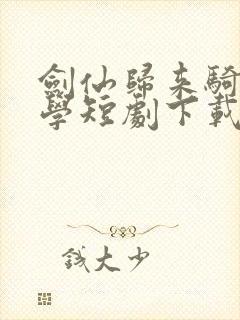 劍仙歸來騎
學短劇下載
錢大少